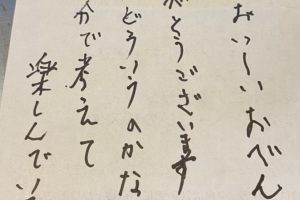 おいしいおべん
がとうございます
どういうのかな
かで考えて
楽しんでい